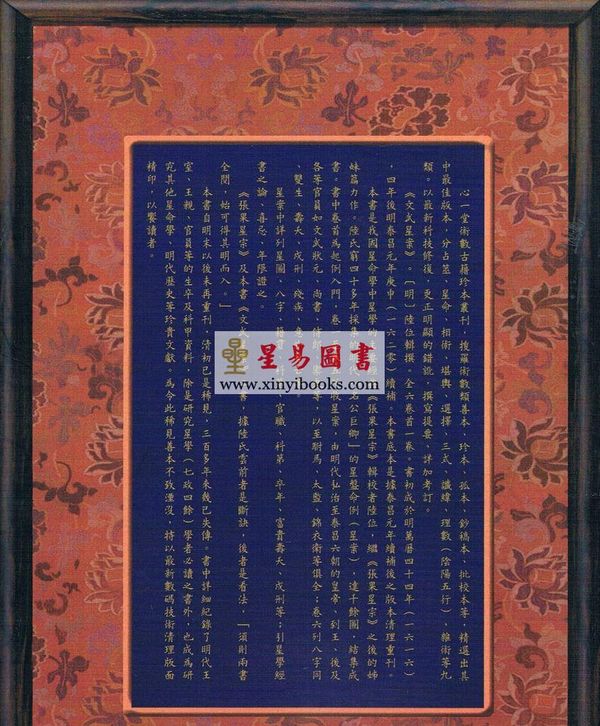 心一堂術數古籍珍本叢刊，搜羅術數類善本、珍本、孤本、鈔稿本、批校本等，精選出其
中最佳版本，分占筮、星命、相術、堪輿、選擇、三式、讖緯、理數（陰陽五行）、雜術等九
類。以最新科技修復，更正明顯的錯訛，撰寫提要，詳加考訂。
《文武星案》。（明）陸位輯撰。全六卷首一卷。書初成於明萬曆四十四年（一六一六）
，四年後明泰昌元年庚申（一六二零）續補。本書底本是據泰昌元年續補後之版本清理重刊。
本書是我國星命學中星學的主要　《張果星宗》輯校者陸位，繼《張果星宗》之後的姊
妹篇力作。陸氏窮四十多年採集的　代　名公巨卿」的星盤命例（星案），達千餘圖，結集成
書。書中卷首為起例入門，卷一至五　收星案。由明代弘治至泰昌六朝的皇帝，到王、後及
各等官員如文武狀元、尚書、侍郎、　等，以至駙馬、太監、錦衣衛等俱全；卷六列八字同
、雙生、壽夭、戍刑、殘疾、
星案中詳列星圖、八字、籍貫、科　、官職、科第、卒年、富貴壽夭、戍刑等；引星學經
書之論、喜忌、年限證之。
《張果星宗》及本書《文武　書，據陸氏雲前者是斷訣，後者是看法，「須則兩書
全閱，始可得其明而入。」
本書自明末以後未再重刊，清初已是稀見，三百多年來幾已失傳。書中詳細紀錄了明代王
室、王親、官員等的生卒及科甲資料，除是研究星學（七政四餘）學者必讀之書外，也成為研
究其他星命學、明代歷史等珍貴文獻。為令此稀見善本不致湮沒，特以最新數碼技術清理版面
精印，以饗讀者。
星易圖書
www.xinyibooks.com